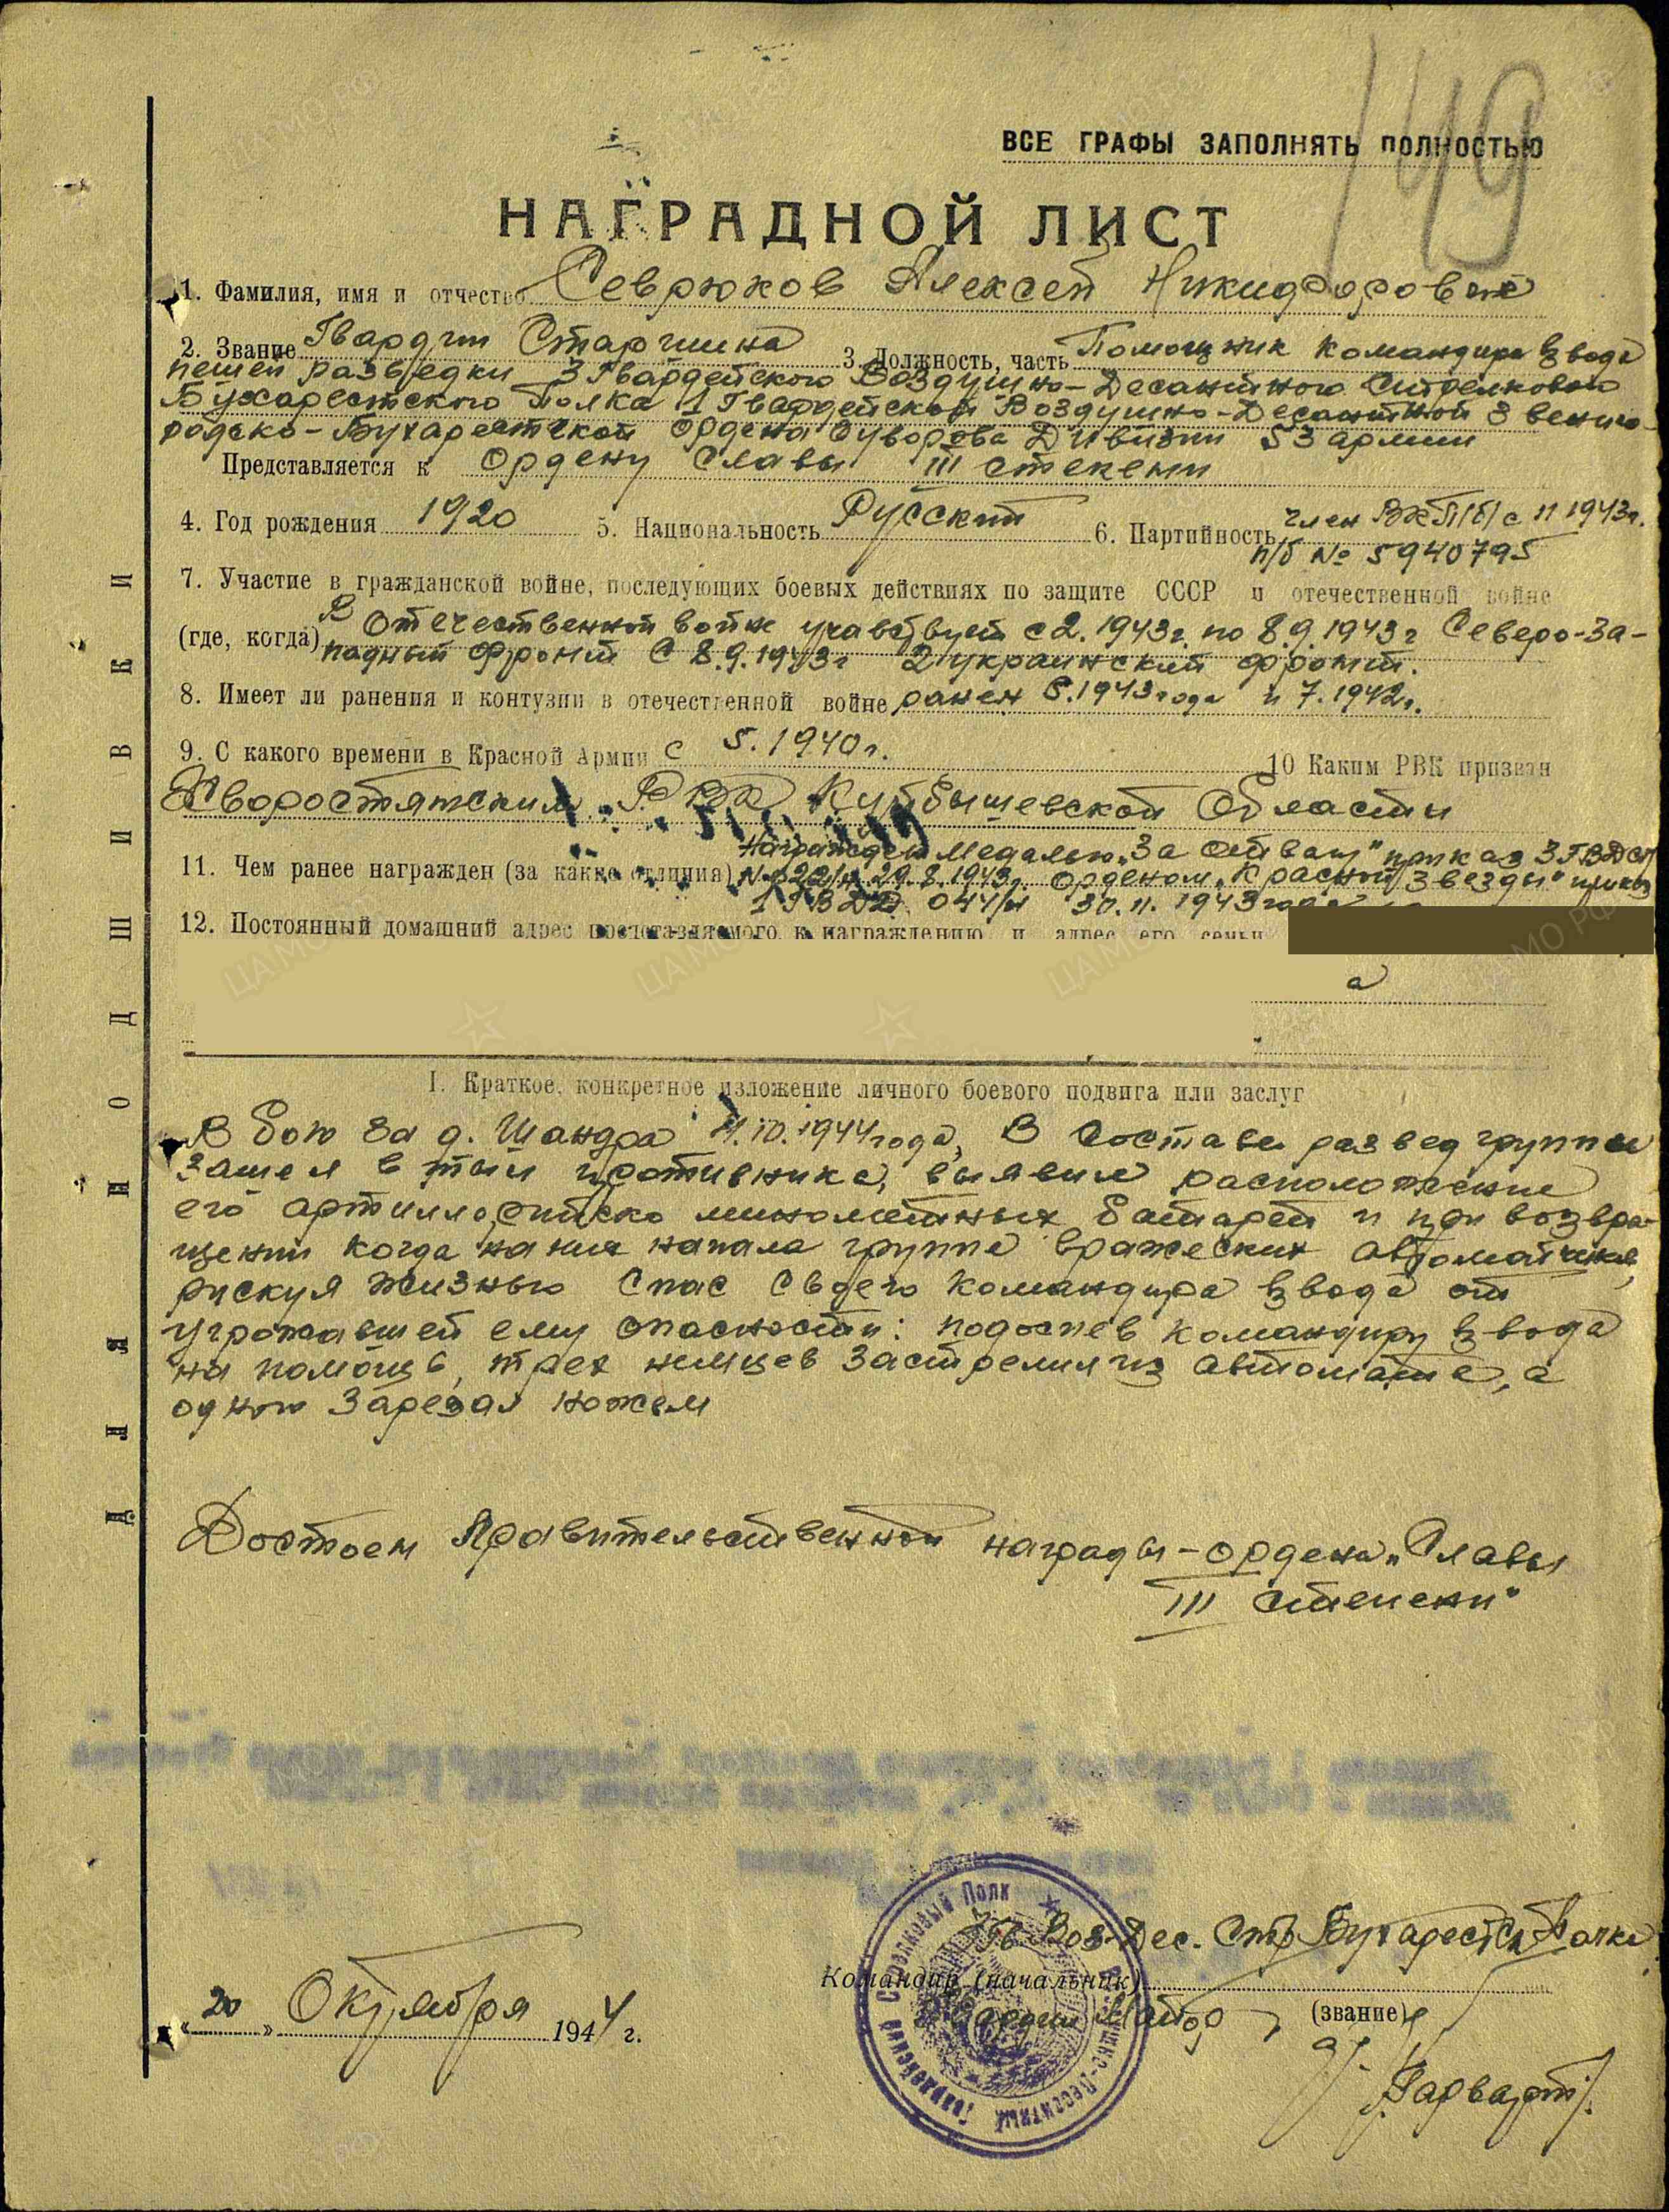 149
ВСЕ ГРАФЫ ЗАПОЛНЯТЬ ПОЛНОСТЬЮ
НАГРАДНОЙ ЛИСТ
1. Фамилия, имя и отчество Севрюков Алексей Никифорович
2. Звание Гвардии Старшина 3. Должность, часть Помощник командира взвода
пешей разведки 3 Гвардейского Воздушно-Десантного Стрелкового
Бухарестского Полка 1 Гвардейской Воздушно-Десантной Звениго-
родско-Бухарестской ордена Суворова Дивизии 53 армии
Представляется к Ордену Славы III степени
4. Год рождения 1920 5. Национальность Русский 6. Партийность член ВКП(б) с 11 1943г.
п/б № 5940795
7. Участие в гражданской войне, последующих боевых действиях по защите СССР и отечественной войне
(где, когда) В Отечественной войне участвует с 2.1943г по 8.9.1943г Северо-За-
падный фронт с 8.9.1943г 2 украинский фронт.
8. Имеет ли ранения и контузии в отечественной войне ранен 5.1943 года и 7.1942г.
9. С какого времени в Красной Армии с 5.1940г. 10 Каким РВК призван
Хворостянским РВК Куйбышевской Области
11. Чем ранее награжден (за какие отличия) Награжден медалью „За отвагу" приказ 3 ГВДСП
№ 22/н 29.8.1943г. орденом „Красной Звезды" приказ
1 ГВДД 044/н 30.11.1943 года
12. Постоянный домашний адрес представляемого к награждению и адрес его семьи
а
I. Краткое, конкретное изложение личного боевого подвига или заслуг
В бою за д. Шандра 11.10.1944 года, В составе развед группы
зашел в тыл противника, выявил расположение
его артиллерийско минометных батарей и при возвра-
щении когда на них напала группа вражеских автоматчиков,
рискуя жизнью спас своего командира взвода от
угрожавшей ему опасности: подоспев командиру взвода
на помощь, трех немцев застрелил из автомата, а
одного зарезал ножем
Достоен Правительственной награды - ордена „Славы
III степени"
3 Гв Воз-Дес. Стр Бухарестск Полка
Командир (начальник)
Гвардии Майор (звание)
„20" Октября 1944 г.
Гвардейский Воздушно-Десантный Стрелковый Полк
ДЛЯ ПОДШИВКИ
ЦАМО РФ